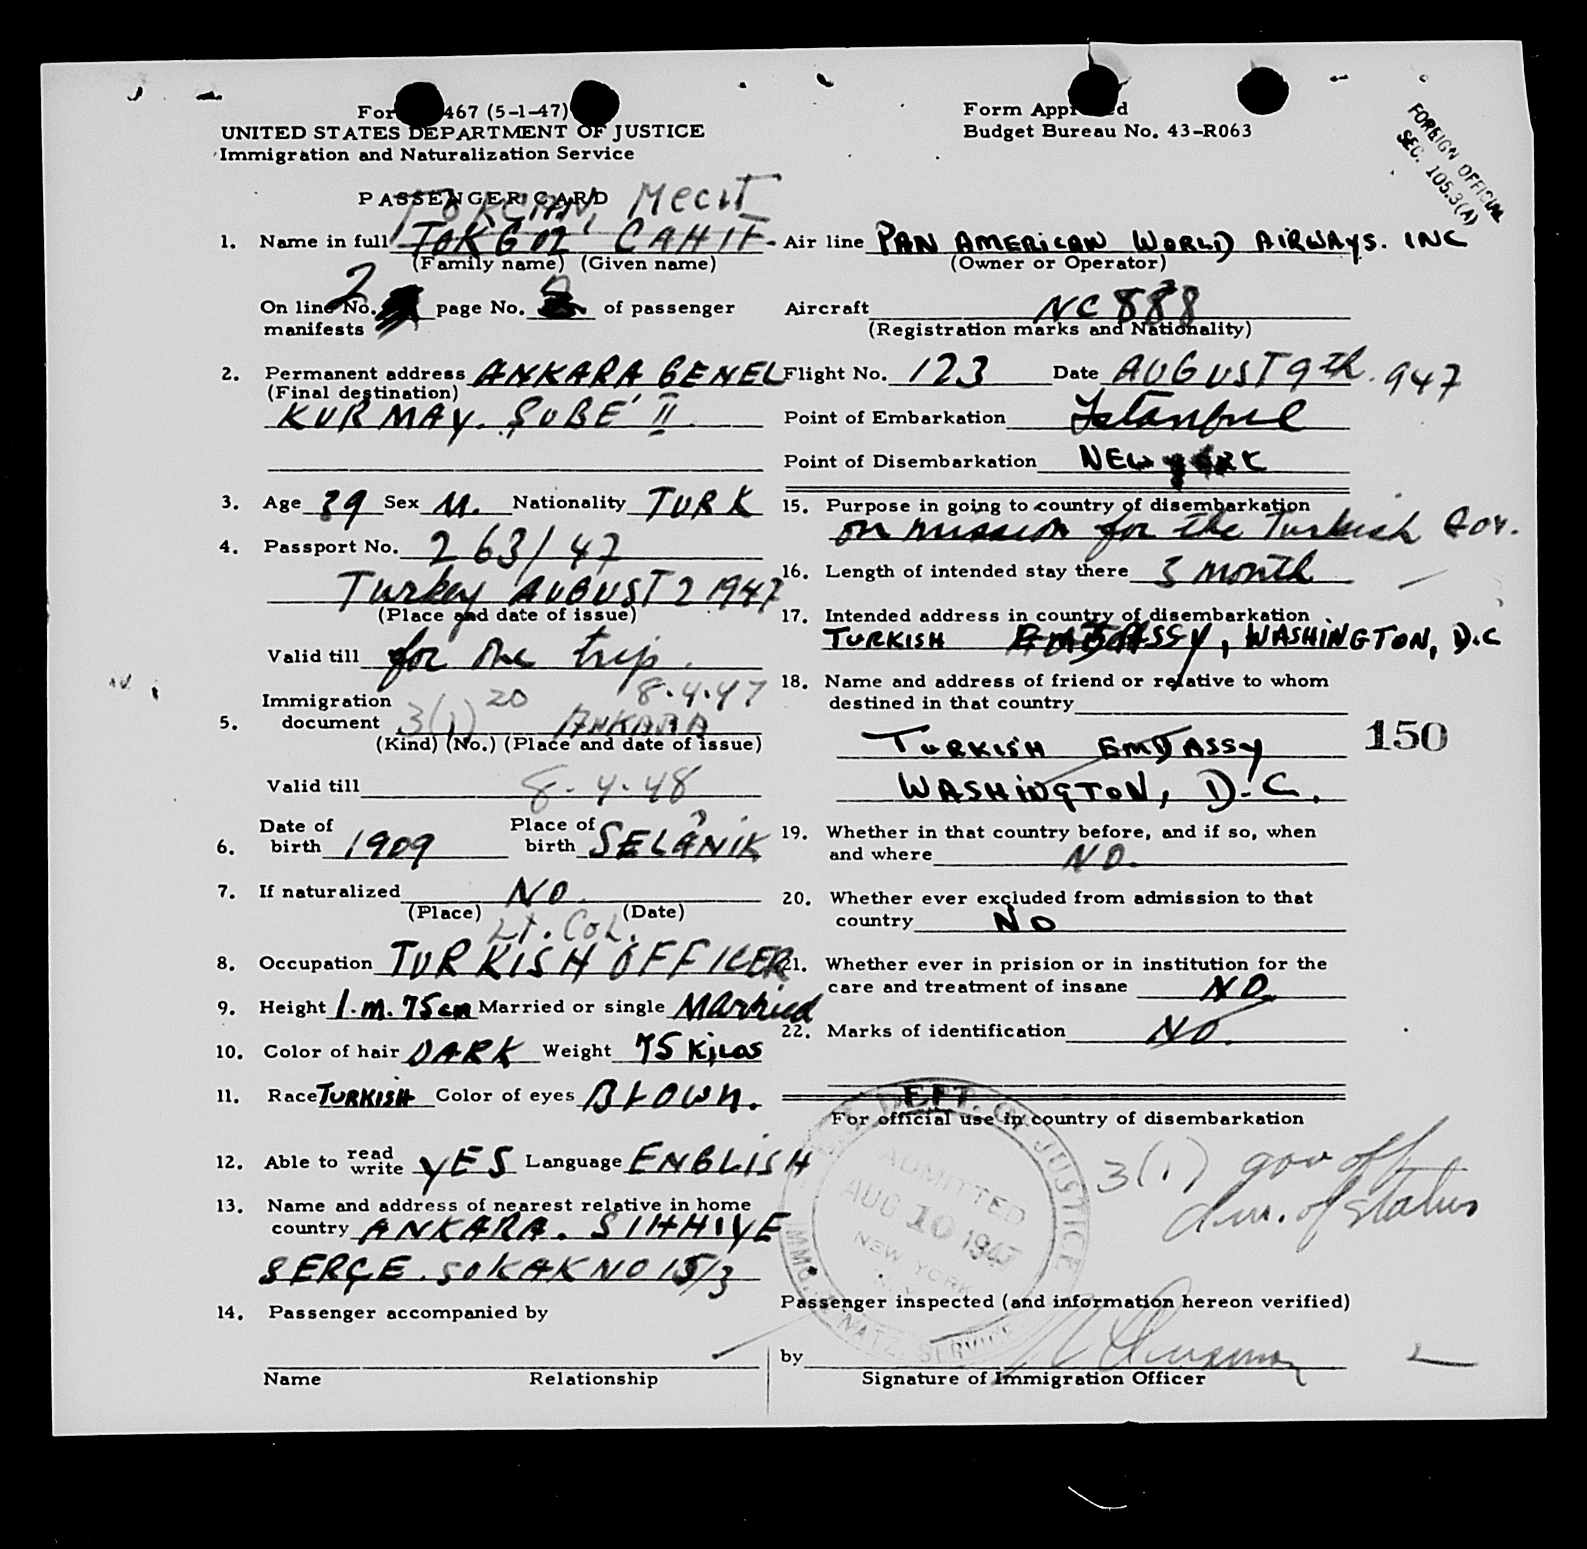 For 467 (5-1-47)
UNITED STATES DEPARTMENT OF JUSTICE
Immigration and Naturalization Service
Form App d
Budget Bureau No. 43-R063
FOREIGN OFFICIAL
SEC. 105.3(A)
PASSENGER CARD
TOKCAN, Mecit
1. Name in full TOKGOZ CAHIT
(Family name) (Given name)
On line No. 2 page No. of passenger
manifests
2. Permanent address ANKARA GENEL
(Final destination)
KURMAY. ŞUBE II
3. Age 39 Sex M. Nationality TURK
4. Passport No. 263/47
Turkey AUGUST 2 1947
(Place and date of issue)
Valid till for one trip.
Immigration 20 8.4.47
5. document 3(1) ANKARA
(Kind) (No.) (Place and date of issue)
Valid till 8.4.48
Date of Place of
6. birth 1909 birth SELÂNIK
7. If naturalized NO.
(Place) (Date)
Lt. Col.
8. Occupation TURKISH OFFICER
9. Height 1.m.75cm Married or single Married
10. Color of hair DARK Weight 75 Kilos
11. Race TURKISH Color of eyes Brown.
12. Able to read write YES Language ENGLISH
13. Name and address of nearest relative in home
country ANKARA. SIHHIYE
SERÇE. SOKAK NO 15/3
14. Passenger accompanied by
Name Relationship
Air line PAN AMERICAN WORLD AIRWAYS. INC
(Owner or Operator)
Aircraft NC 888
(Registration marks and Nationality)
Flight No. 123 Date AUGUST 9th. 947
Point of Embarkation Istanbul
Point of Disembarkation NEW YORK
15. Purpose in going to country of disembarkation
on mission for the Turkish Gov.
16. Length of intended stay there 3 month
17. Intended address in country of disembarkation
TURKISH EMBASSY, WASHINGTON, D.C
18. Name and address of friend or relative to whom
destined in that country
TURKISH EMBASSY
WASHINGTON, D.C.
150
19. Whether in that country before, and if so, when
and where NO.
20. Whether ever excluded from admission to that
country NO
21. Whether ever in prision or in institution for the
care and treatment of insane NO
22. Marks of identification NO.
For official use in country of disembarkation
DEPT. OF JUSTICE
ADMITTED
AUG 10 1947
NEW YORK
IMMG. & NATZ. SERVICE
3(1) gov off
dur. of status
Passenger inspected (and information hereon verified)
by
Signature of Immigration Officer